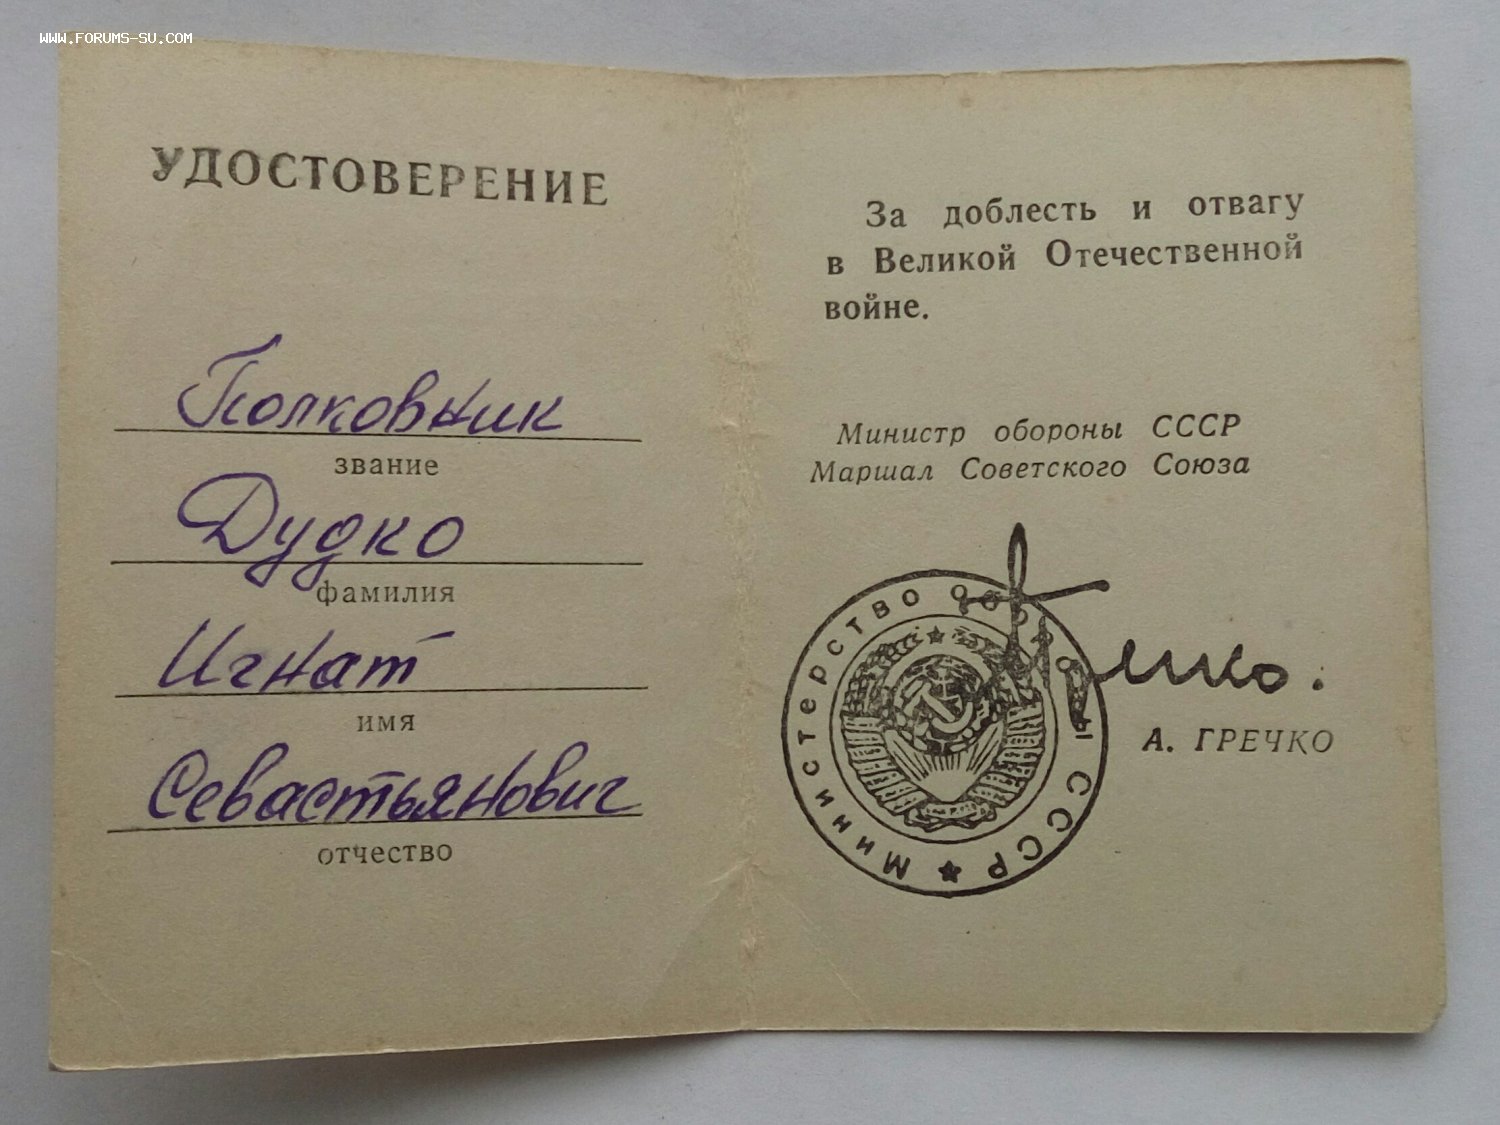 WWW.FORUMS-SU.COM
УДОСТОВЕРЕНИЕ
Полковник
звание
Дудко
фамилия
Игнат
имя
Севастьянович
отчество
За доблесть и отвагу
в Великой Отечественной
войне.
Министр обороны СССР
Маршал Советского Союза
Министерство обороны СССР
А. ГРЕЧКО